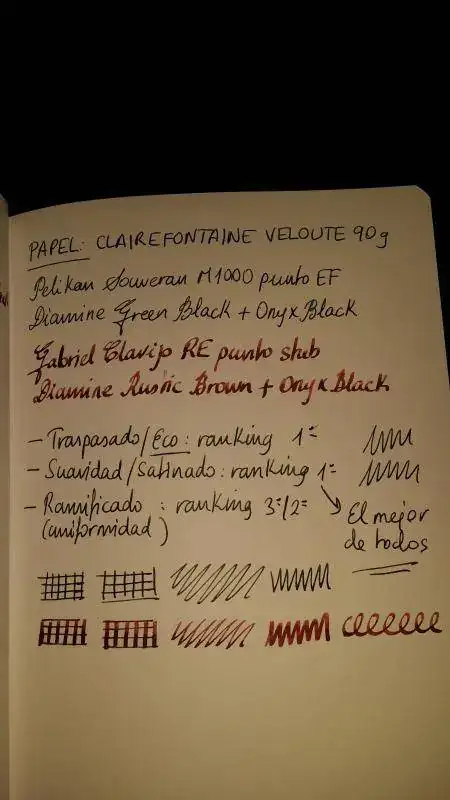 PAPEL: CLAIREFONTAINE VELOUTE 90g
Pelikan Souveran M1000 punto EF
Diamine Green Black + Onyx Black
Gabriel Clavijo RE punto stub
Diamine Rustic Brown + Onyx Black
- Traspasado/Eco: ranking 1º
- Suavidad/Satinado: ranking 1º
- Ramificado : ranking 3º/2º
(uniformidad)
El mejor
de todos